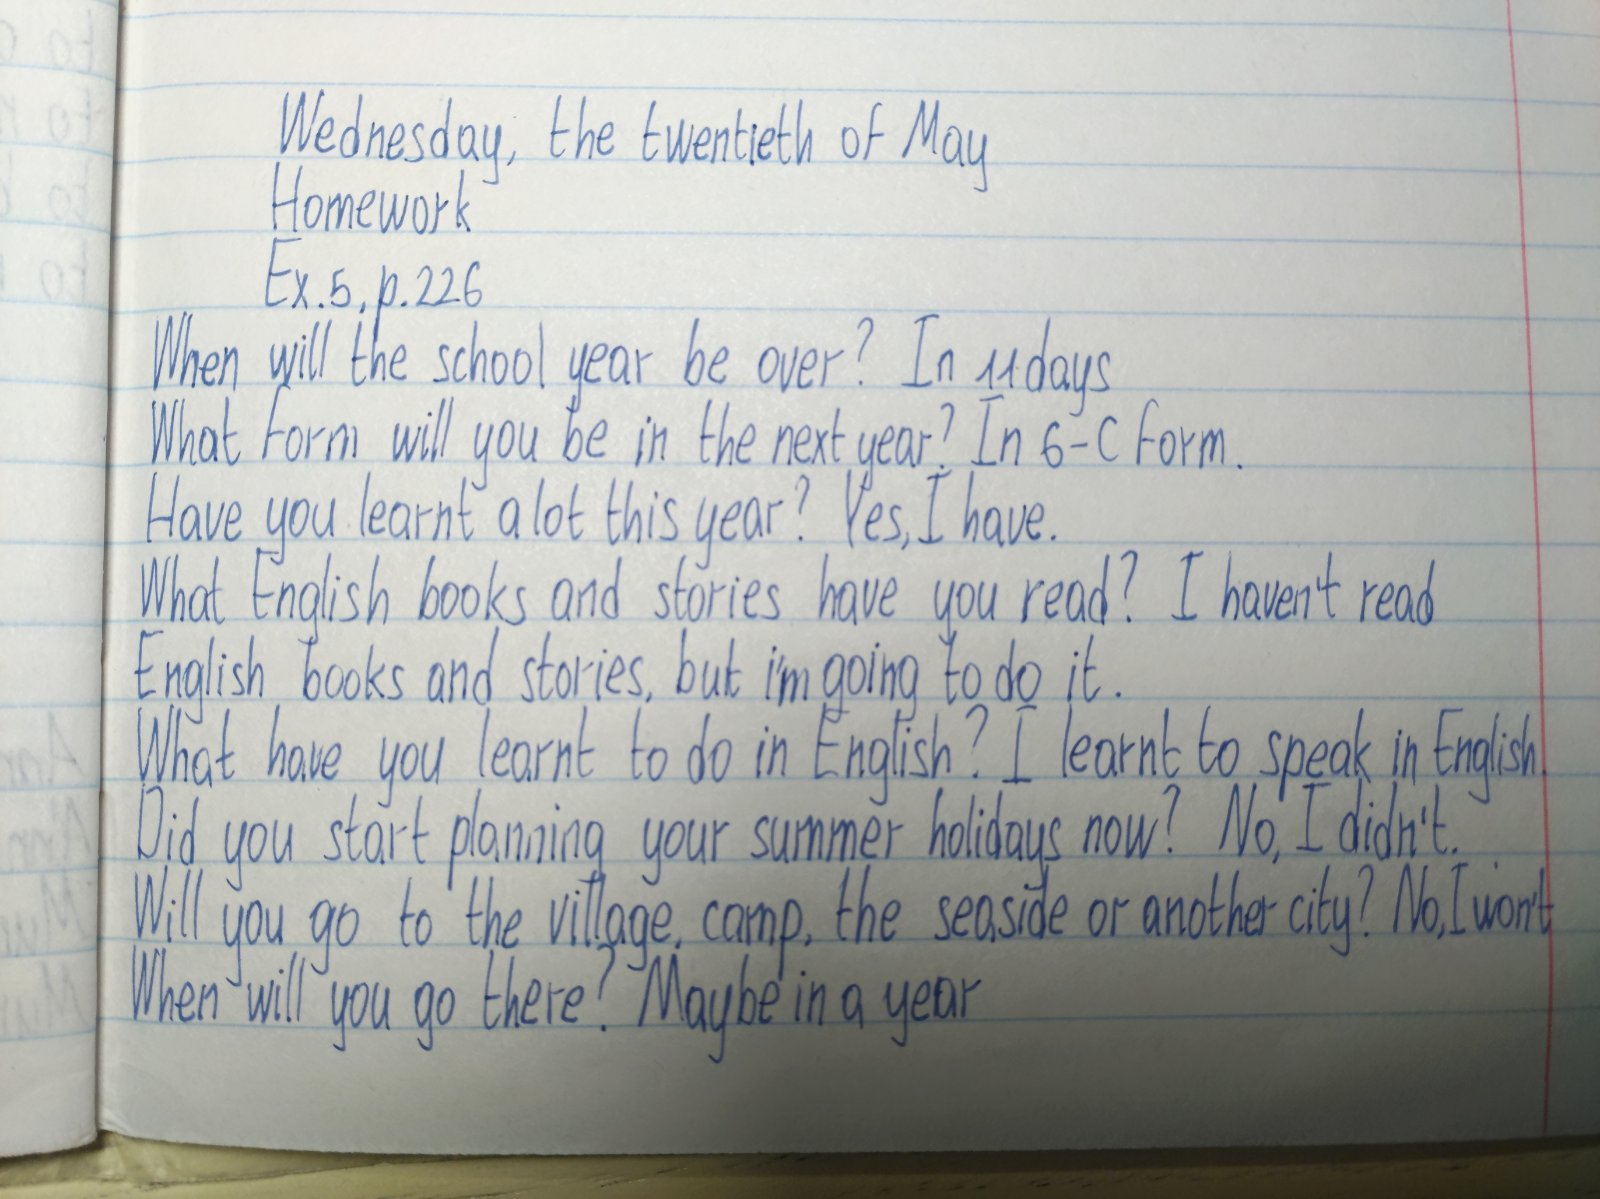 Wednesday, the twentieth of May
Homework
Ex.5, p.226
When will the school year be over? In 11 days
What form will you be in the next year? In 6-C form.
Have you learnt a lot this year? Yes, I have.
What English books and stories have you read? I haven't read
English books and stories, but i'm going to do it.
What have you learnt to do in English? I learnt to speak in English.
Did you start planning your summer holidays now? No, I didn't.
Will you go to the village, camp, the seaside or another city? No, I won't
When will you go there? Maybe in a year